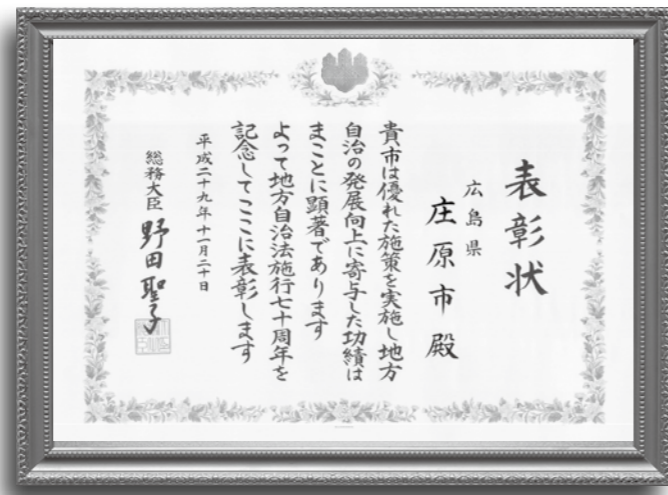 表彰状
広島県
庄原市殿
貴市は優れた施策を実施し地方
自治の発展向上に寄与した功績は
まことに顕著であります
よって地方自治法施行七十周年を
記念してここに表彰します
平成二十九年十一月二十日
総務大臣 野田聖子